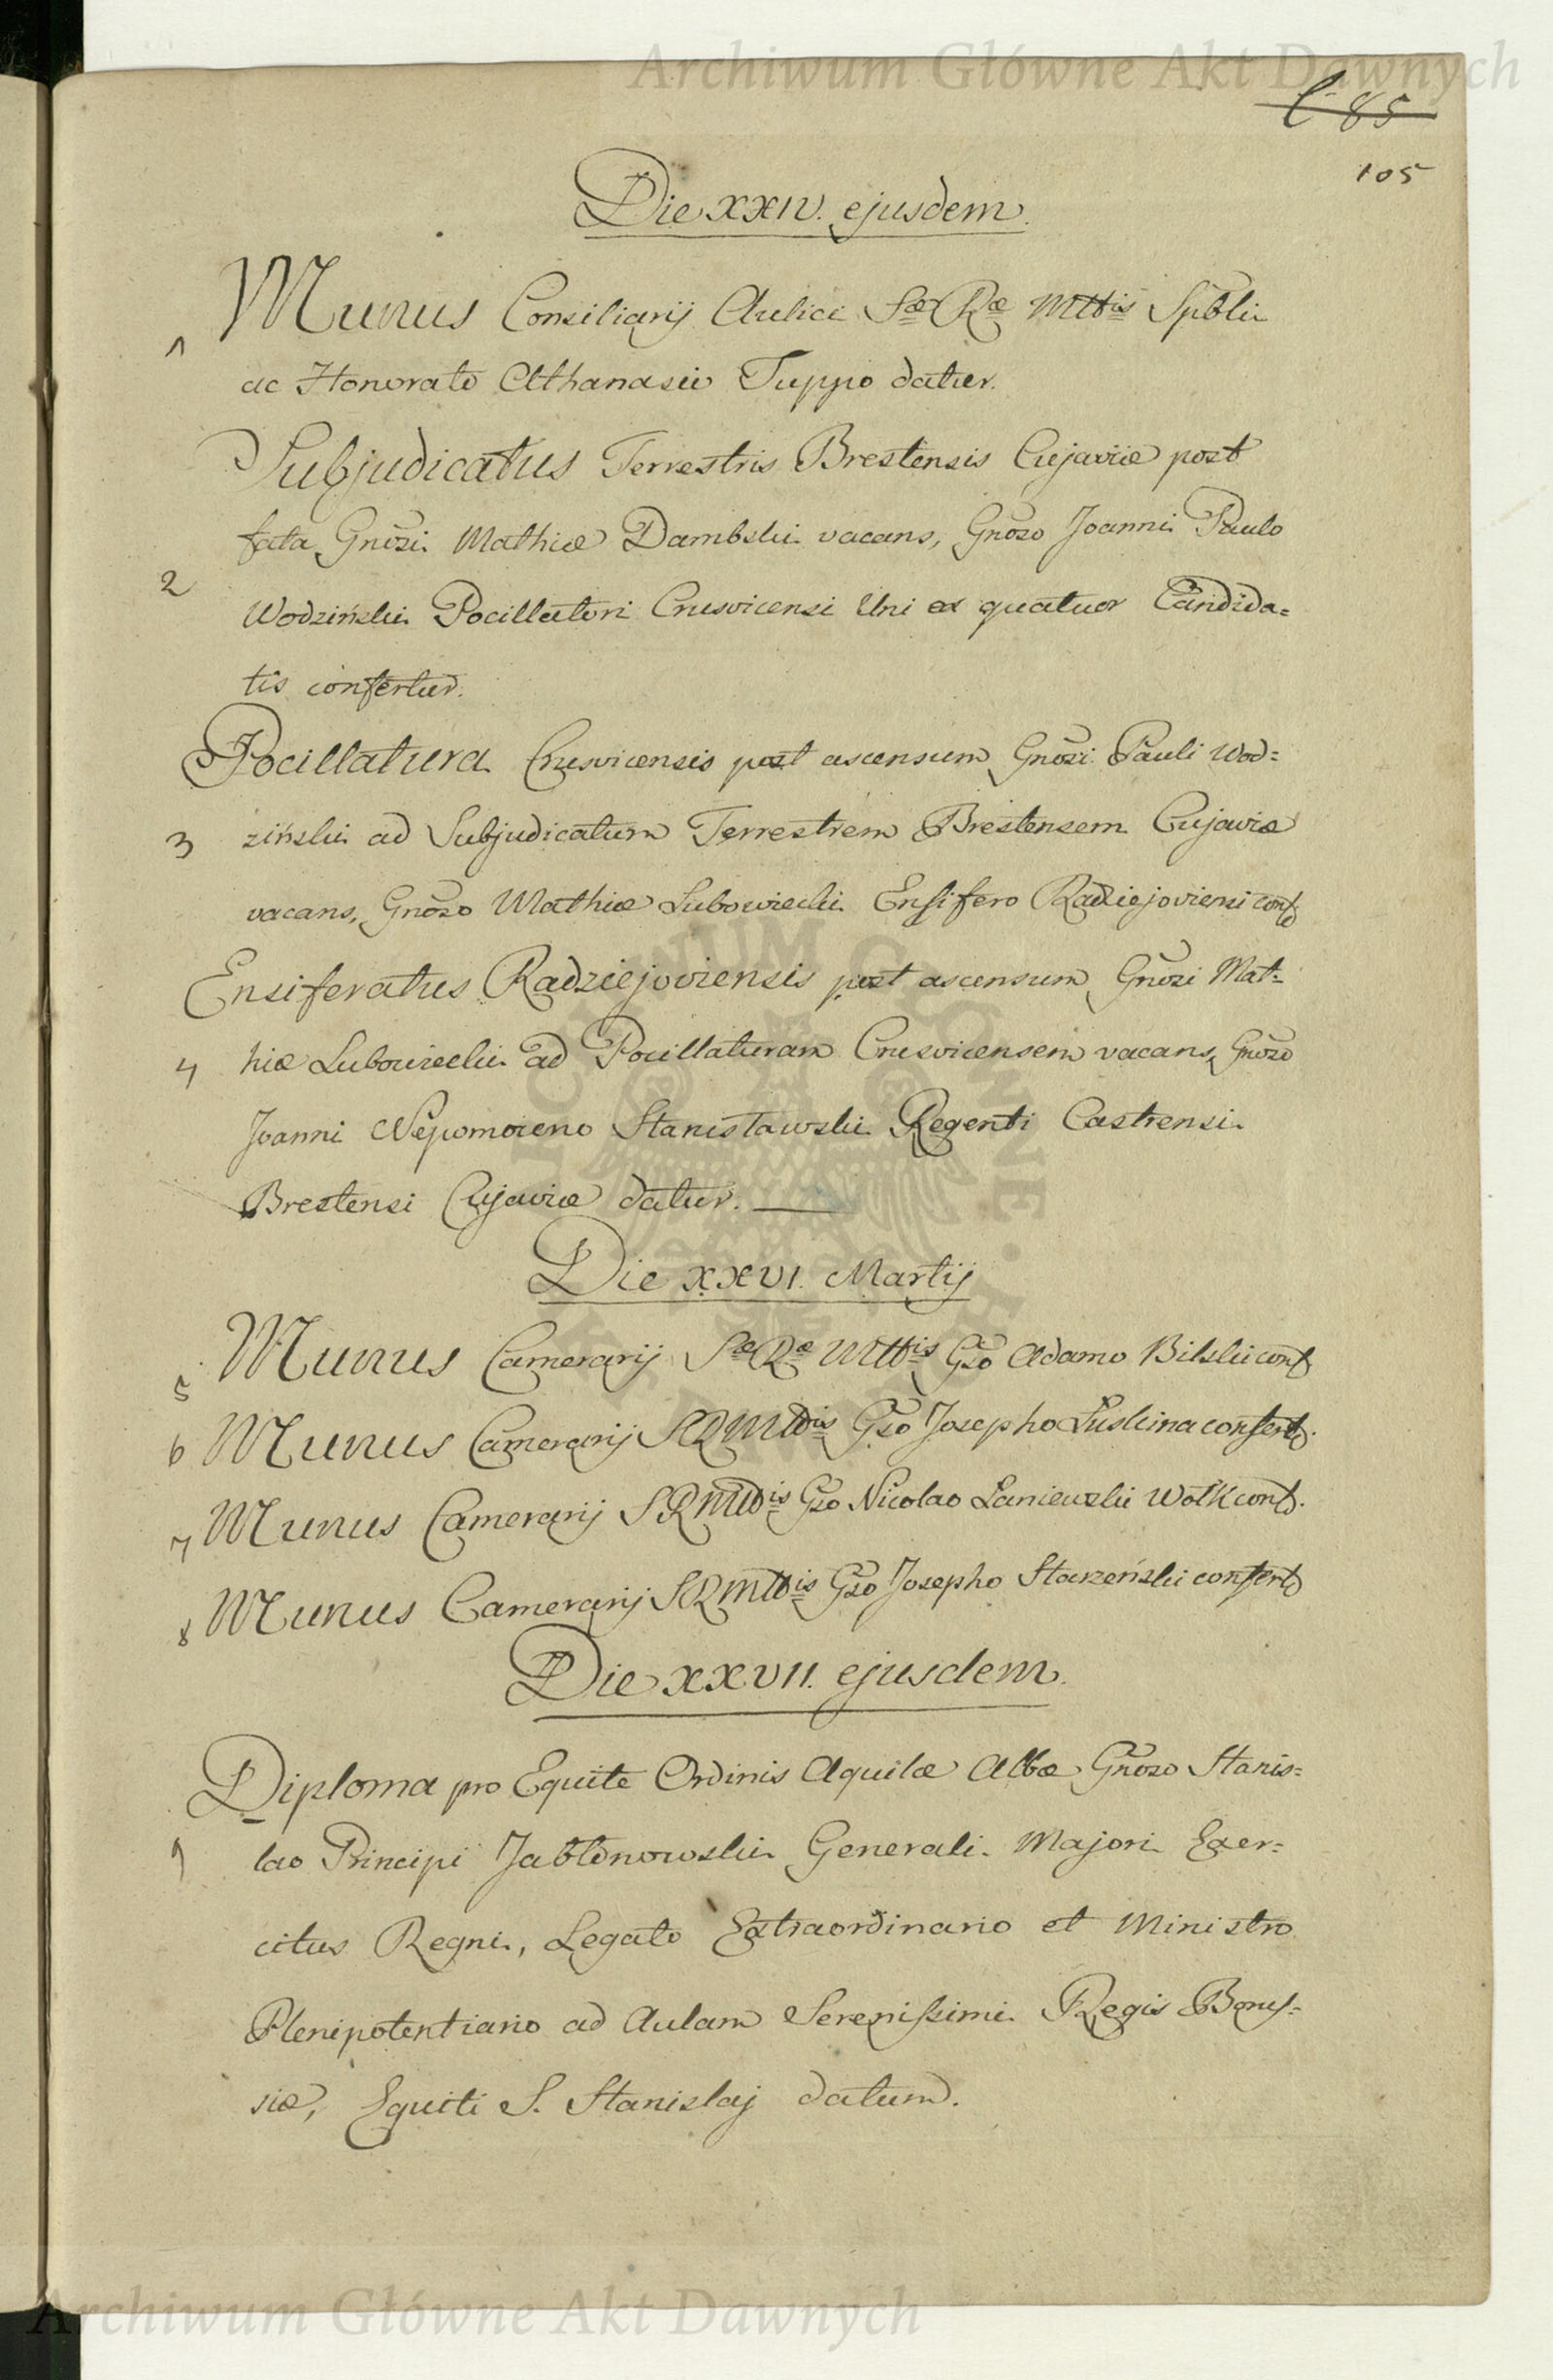 Archiwum Główne Akt Dawnych
C 85
105
Die XXIV. ejusdem.
1 Munus Consiliarij Aulici Sæ Ræ Mttis Spbli
ac Honorato Athanasio Tuppo datur.
Subjudicatus Terrestris Brestensis Cujaviæ post
fata Gnosi Mathiæ Dambski vacans, Gnoso Joanni Paulo
2 Wodziński Pocillatori Crusvicensi Uni ex quatuor Candida=
tis confertur.
Pocillatura Crusvicensis post ascensum Gnosi Pauli Wod=
3 ziński ad Subjudicatum Terrestrem Brestensem Cujaviæ
vacans, Gnoso Mathiæ Lubowiecki Ensifero Radziejoviensi conf
Ensiferatus Radziejoviensis post ascensum Gnosi Mat=
4 hiæ Lubowiecki ad Pocillaturam Crusvicensem vacans, Gnoso
Joanni Nepomoceno Stanisławski Regenti Castrensi
Brestensi Cujaviæ datur.
Die XXVI. Martij
5 Munus Camerarij Sæ Ræ Mttis Gso Adamo Bilski conf
6 Munus Camerarij SRMttis Gso Josepho Luskina confert.
7 Munus Camerarij SRMttis Gso Nicolao Laniewski Wołk conf.
8 Munus Camerarij SRMttis Gso Josepho Starzeński confert
Die XXVII. ejusdem.
Diploma pro Equite Ordinis Aquilæ Albæ Gnoso Stanis=
9 lao Principi Jabłonowski Generali Majori Exer=
citus Regni, Legato Extraordinario et Ministro
Plenipotentiario ad Aulam Serenissimi Regis Borus=
siæ, Equiti S. Stanislaj datum.
Archiwum Główne Akt Dawnych